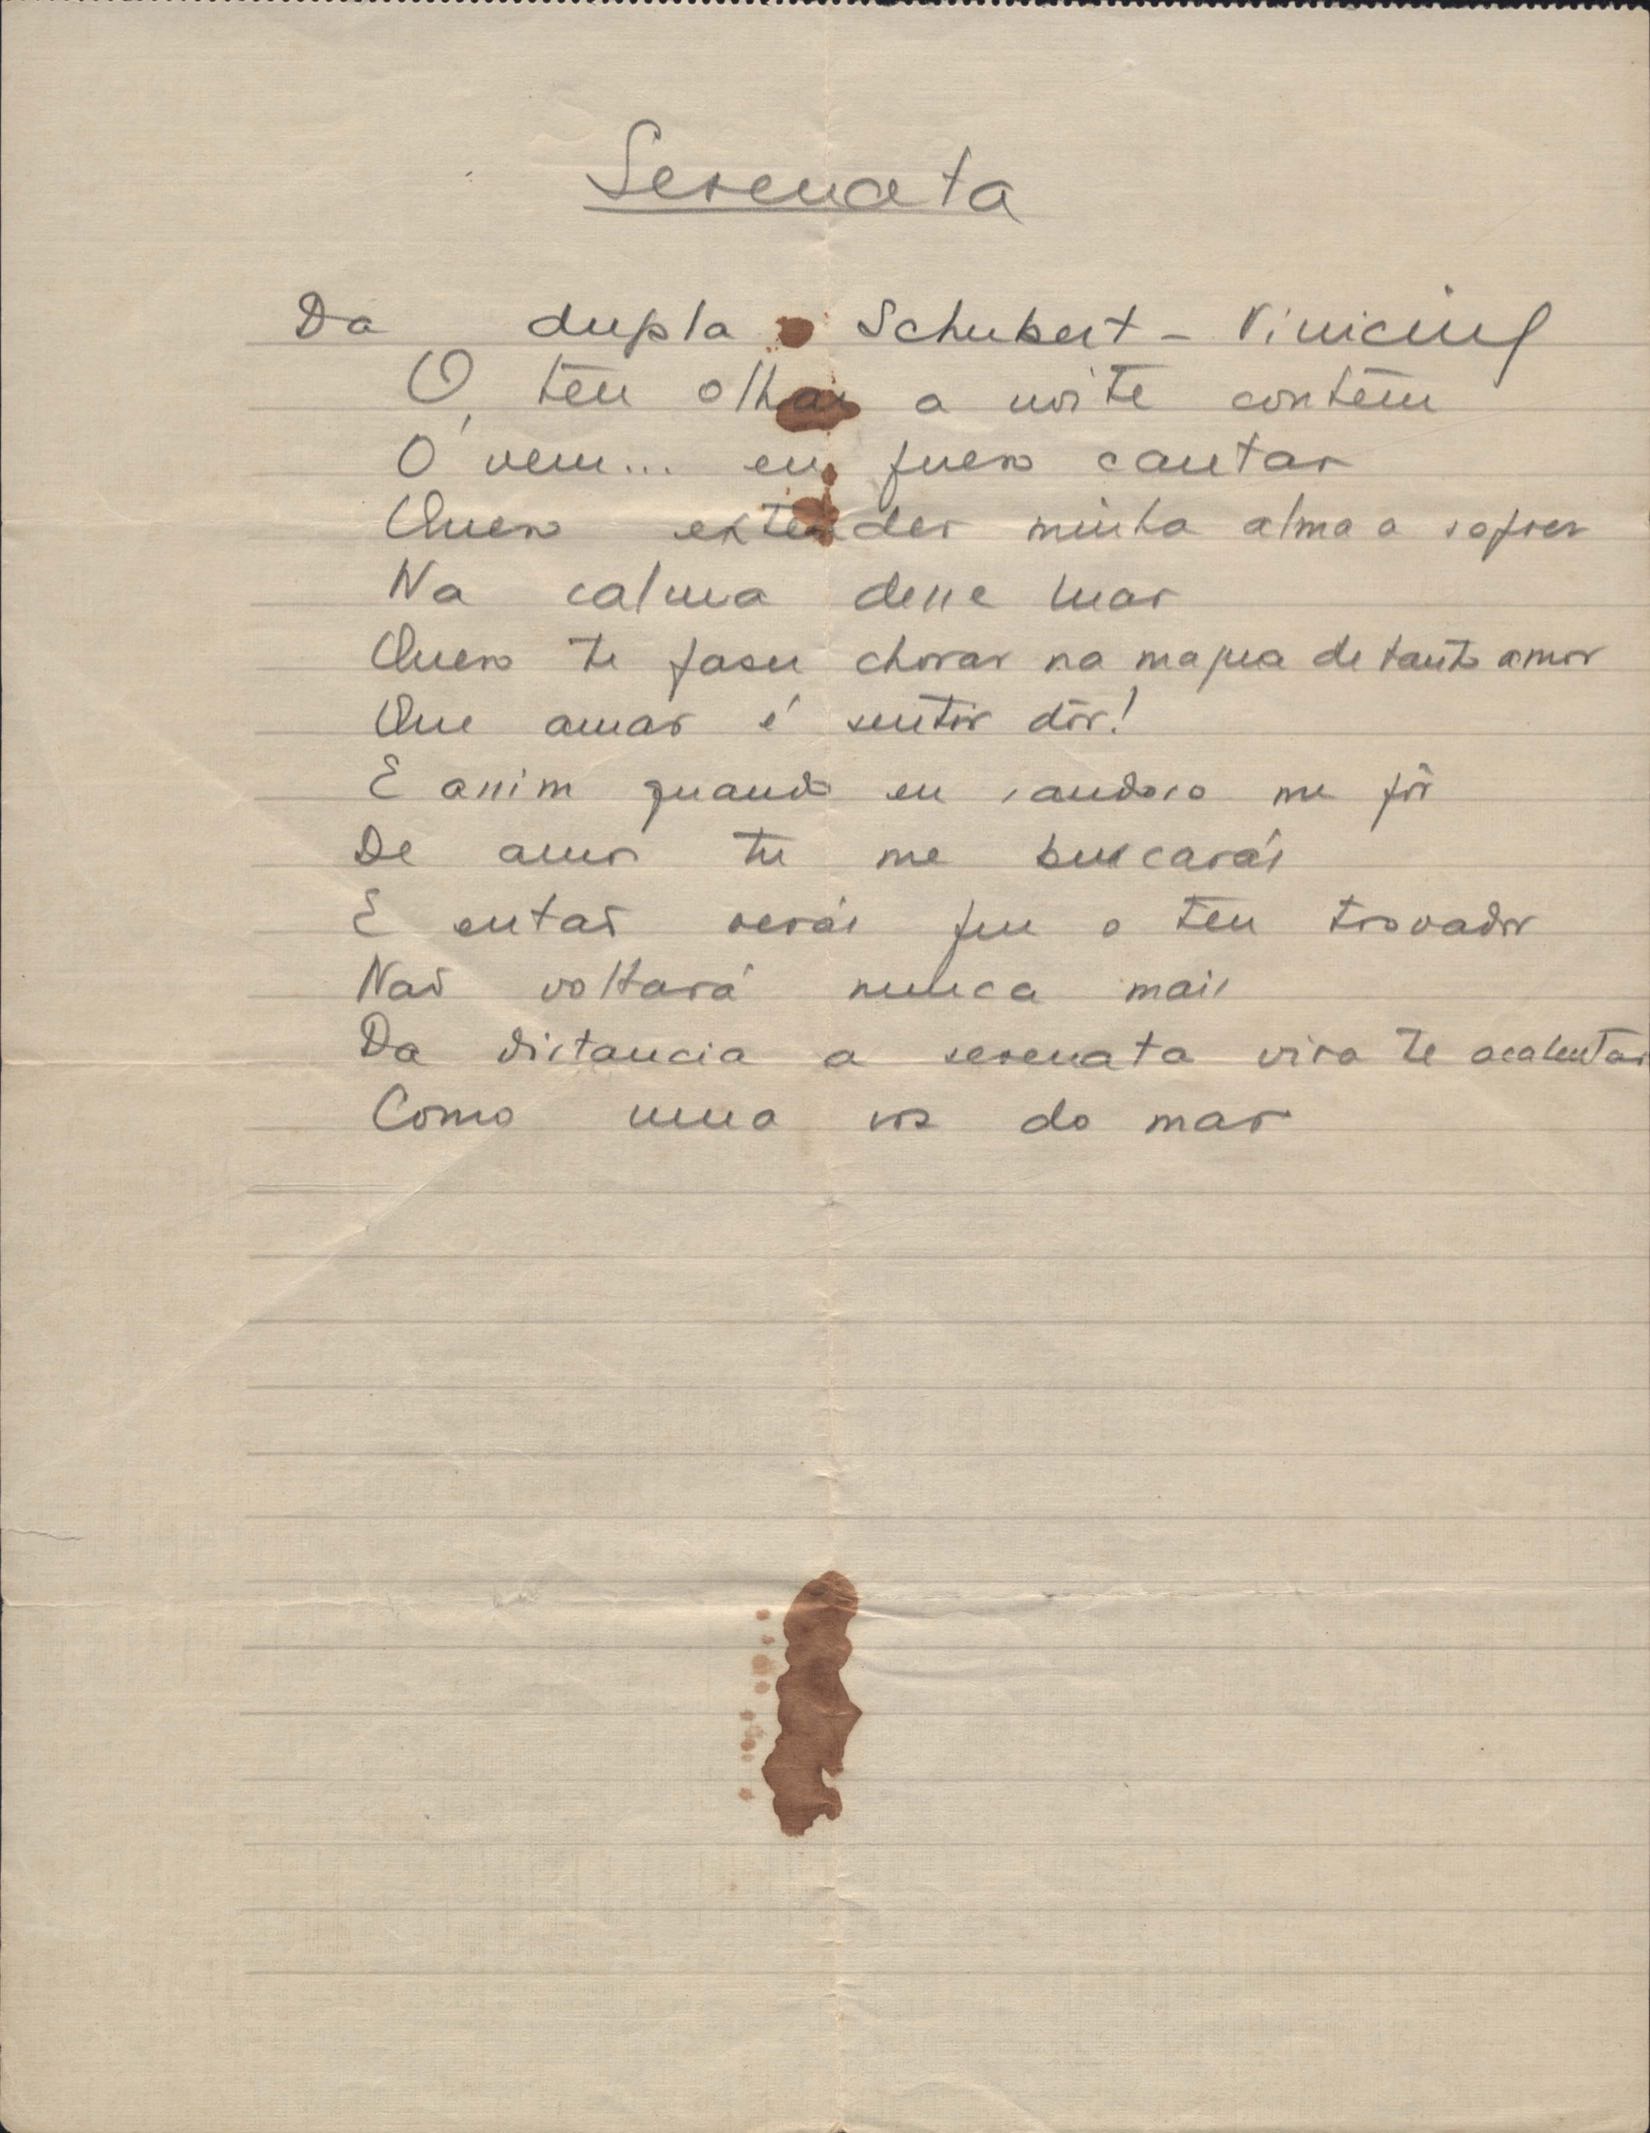 Serenata
Da dupla Schubert - Vinicius
O teu olhar a noite contem
Ó vem... eu quero cantar
Quero extender minha alma a sofrer
Na calma desse luar
Quero te faser chorar na magua de tanto amor
Que amar é sentir dôr!
E assim quando eu saudoso me fôr
De amor tu me buscarás
E então verás que o teu trovador
Não voltará nunca mais
Da distancia a serenata vira te acalentar
Como uma vos do mar